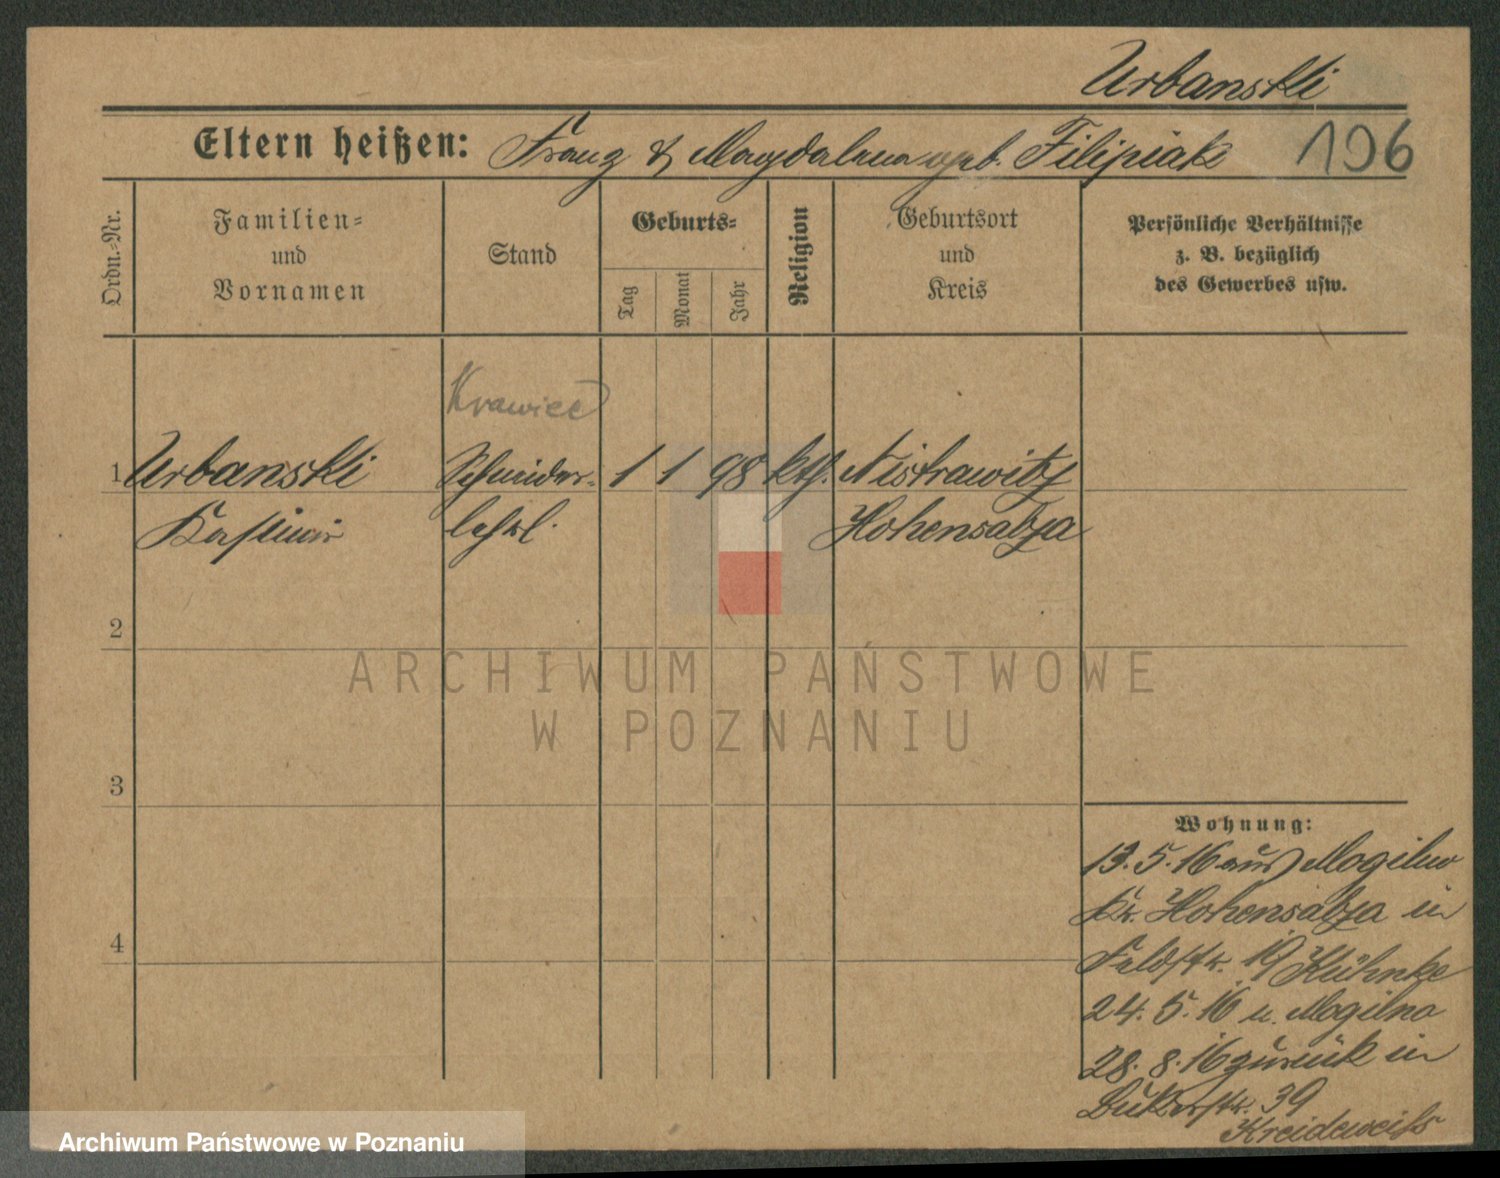 Urbanski
Eltern heißen: Franz & Magdalena geb. Filipiak 196
Ordn.-Nr.
Familien-
und
Vornamen
Stand
Geburts-
Tag
Monat
Jahr
Religion
Geburtsort
und
Kreis
Persönliche Verhältnisse
z. B. bezüglich
des Gewerbes usw.
Krawiec
1 Urbanski Schneider- 1 1 98 kth.
Kasimir lehrl. Hohensalza
2
3
4
Wohnung:
13.5.16 aus Mogilno
Kr. Hohensalza in
Feldstr. 19 Kühnke
24.5.16 n. Mogilno
28.8.16 zurück in
39
Kreideweiß
ARCHIWUM PAŃSTWOWE
W POZNANIU
Archiwum Państwowe w Poznaniu